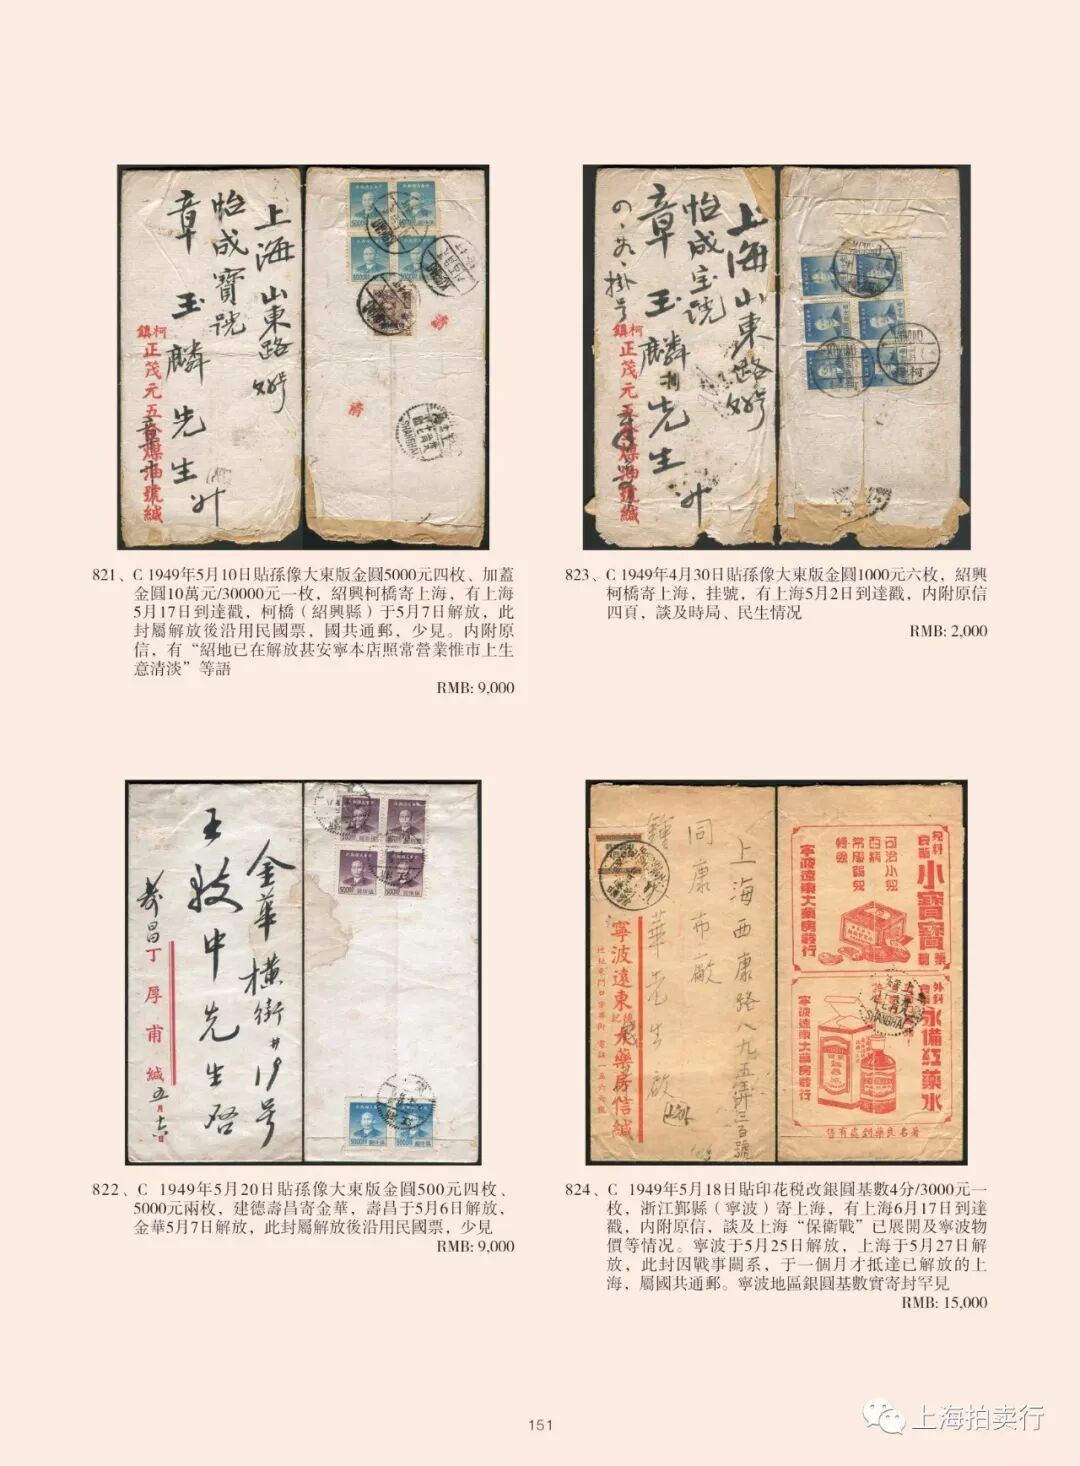 上海山東路
怡成寶號
章玉麟先生
柯鎮正茂元五金煤油號緘
SHANGHAI
821、C 1949年5月10日貼孫像大東版金圓5000元四枚、加蓋
金圓10萬元/30000元一枚，紹興柯橋寄上海，有上海
5月17日到達戳，柯橋（紹興縣）于5月7日解放，此
封屬解放後沿用民國票，國共通郵，少見。内附原
信，有“紹地已在解放甚安寧本店照常營業惟市上生
意清淡”等語
RMB: 9,000
上海山東路
怡成宝號
章玉麟先生
掛号
柯鎮正茂元五金煤油號緘
823、C 1949年4月30日貼孫像大東版金圓1000元六枚，紹興
柯橋寄上海，挂號，有上海5月2日到達戳，内附原信
四頁，談及時局、民生情况
RMB: 2,000
金華橫街19号
王先生啓
壽昌丁厚甫緘
822、C 1949年5月20日貼孫像大東版金圓500元四枚、
5000元兩枚，建德壽昌寄金華，壽昌于5月6日解放，
金華5月7日解放，此封屬解放後沿用民國票，少見
RMB: 9,000
上海西康路八九五弄三百號
同康布廠
鍾華先生啟
寧波遠東大藥房信緘
小寶寶
寧波遠東大藥房發行
SHANGHAI
永備紅藥水
寧波遠東大藥房發行
著名民藥到處有售
824、C 1949年5月18日貼印花税改銀圓基數4分/3000元一
枚，浙江鄞縣（寧波）寄上海，有上海6月17日到達
戳，内附原信，談及上海“保衛戰”已展開及寧波物
價等情况。寧波于5月25日解放，上海于5月27日解
放，此封因戰事關系，于一個月才抵達已解放的上
海，屬國共通郵。寧波地區銀圓基數實寄封罕見
RMB: 15,000
151
上海拍卖行